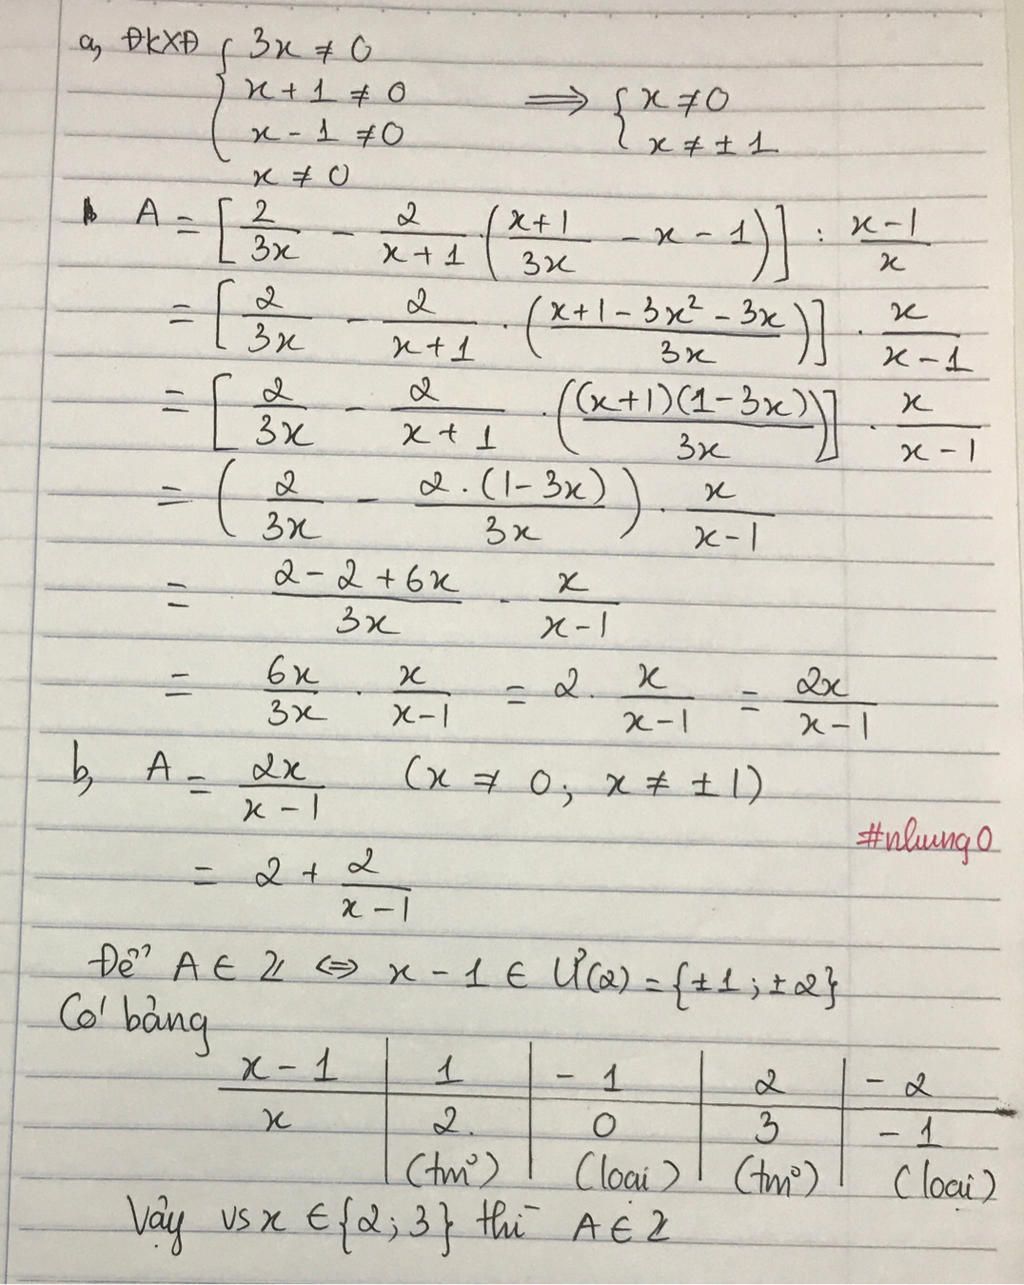 a, ĐKXĐ { 3x ≠ 0
x + 1 ≠ 0 ⟹ { x ≠ 0
x - 1 ≠ 0 x ≠ ± 1
x ≠ 0
A = [ 2/3x - 2/(x+1) ( (x+1)/3x - x - 1 ) ] : (x-1)/x
= [ 2/3x - 2/(x+1) . ( (x+1-3x² - 3x)/3x ) ] . x/(x-1)
= [ 2/3x - 2/(x+1) . ( ((x+1)(1-3x))/3x ) ] . x/(x-1)
= ( 2/3x - (2.(1-3x))/3x ) . x/(x-1)
= (2-2+6x)/3x . x/(x-1)
= 6x/3x . x/(x-1) = 2. x/(x-1) = 2x/(x-1)
b, A = 2x/(x-1) (x ≠ 0; x ≠ ±1)
#nhung0
= 2 + 2/(x-1)
Để A ∈ Z ⇔ x - 1 ∈ Ư(2) = {±1; ±2}
Có bảng
x - 1 | 1 | - 1 | 2 | - 2
x | 2. | 0 | 3 | - 1
(tm) | (loại) | (tm) | (loại)
Vậy vs x ∈ {2; 3} thì A ∈ Z